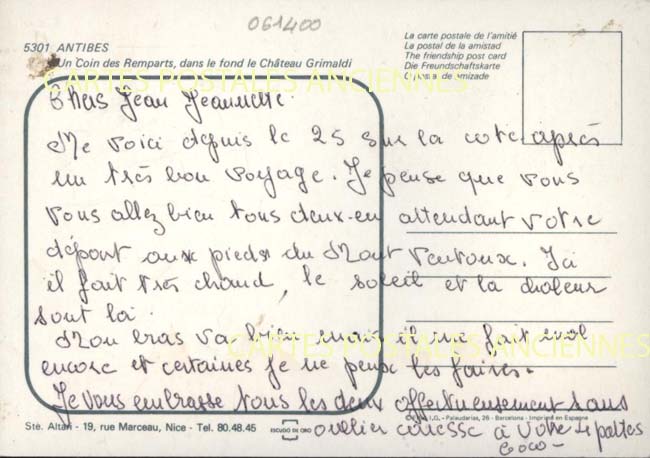 061400
5301 ANTIBES
Un Coin des Remparts, dans le fond le Château Grimaldi
La carte postale de l'amitié
La postal de la amistad
The friendship post card
Die Freundschaftskarte
O postal de amizade
CARTES POSTALES ANCIENNES
Chers Jean Jeannette.
Me voici depuis le 25 sur la cote après
un très bon voyage. Je pense que vous
vous allez bien tous deux en attendant votre
départ aux pieds du Mont Ventoux. Ici
il fait très chaud, le soleil et la chaleur
sont là.
CARTES POSTALES ANCIENNES
Mon bras va bien mais il me fait mal
encore et certaines je ne peux les faires.
Je vous embrasse tous les deux affectueusement sans
oublier caresse à votre 4 pattes
Coco
Ste. Altari - 19, rue Marceau, Nice - Tel. 80.48.45
ESCUDO DE ORO
Palaudarias, 26 - Barcelona - Imprimé en Espagne